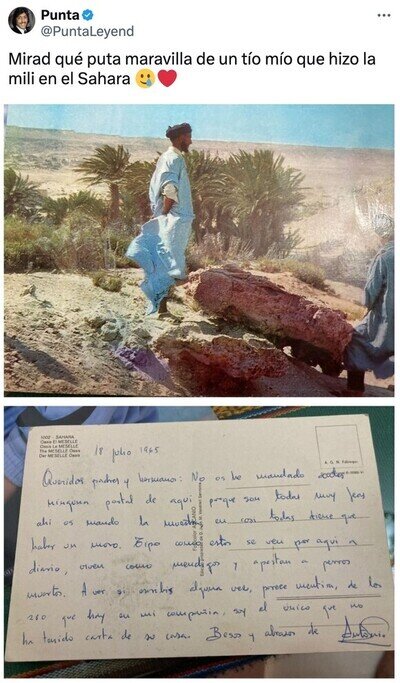 Punta
@PuntaLeyend
Mirad qué puta maravilla de un tío mío que hizo la
mili en el Sahara 🥲❤️
1002 - SAHARA
Oasis El MESELLE
Oasis Le MESELLE
The MESELLE Oasis
Der MESELLE Oasis
18 julio 1965
Queridos padres y hermano: No os he mandado
ninguna postal de aqui porque son todas muy feas
ahi os mando la muestra, en casi todas tiene que
haber un moro. Tipo como estos se ven por aqui a
diario, viven como mendigos y apestan a perros
muertos. A ver si escribis alguna vez, parece mentira, de los
210 que hay en mi compañia, soy el único que no
ha tenido carta de su casa. Besos y abrazos de Antonio